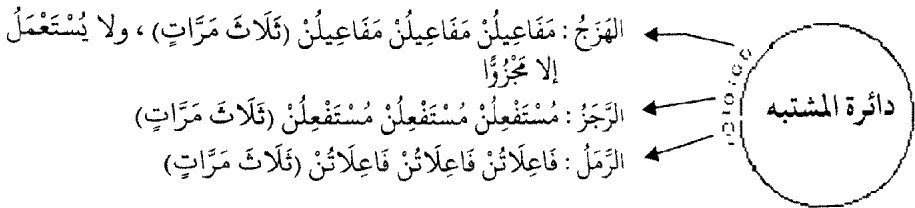 دائرة المشتبه
الهَزَجُ : مَفَاعِيلُنْ مَفَاعِيلُنْ مَفَاعِيلُنْ (ثَلَاثَ مَرَّاتٍ) ، ولا يُسْتَعْمَلُ
إلا مَجْزُوًّا
الرَّجَزُ : مُسْتَفْعِلُنْ مُسْتَفْعِلُنْ مُسْتَفْعِلُنْ (ثَلَاثَ مَرَّاتٍ)
الرَّمَلُ : فَاعِلَاتُنْ فَاعِلَاتُنْ فَاعِلَاتُنْ (ثَلَاثَ مَرَّاتٍ)